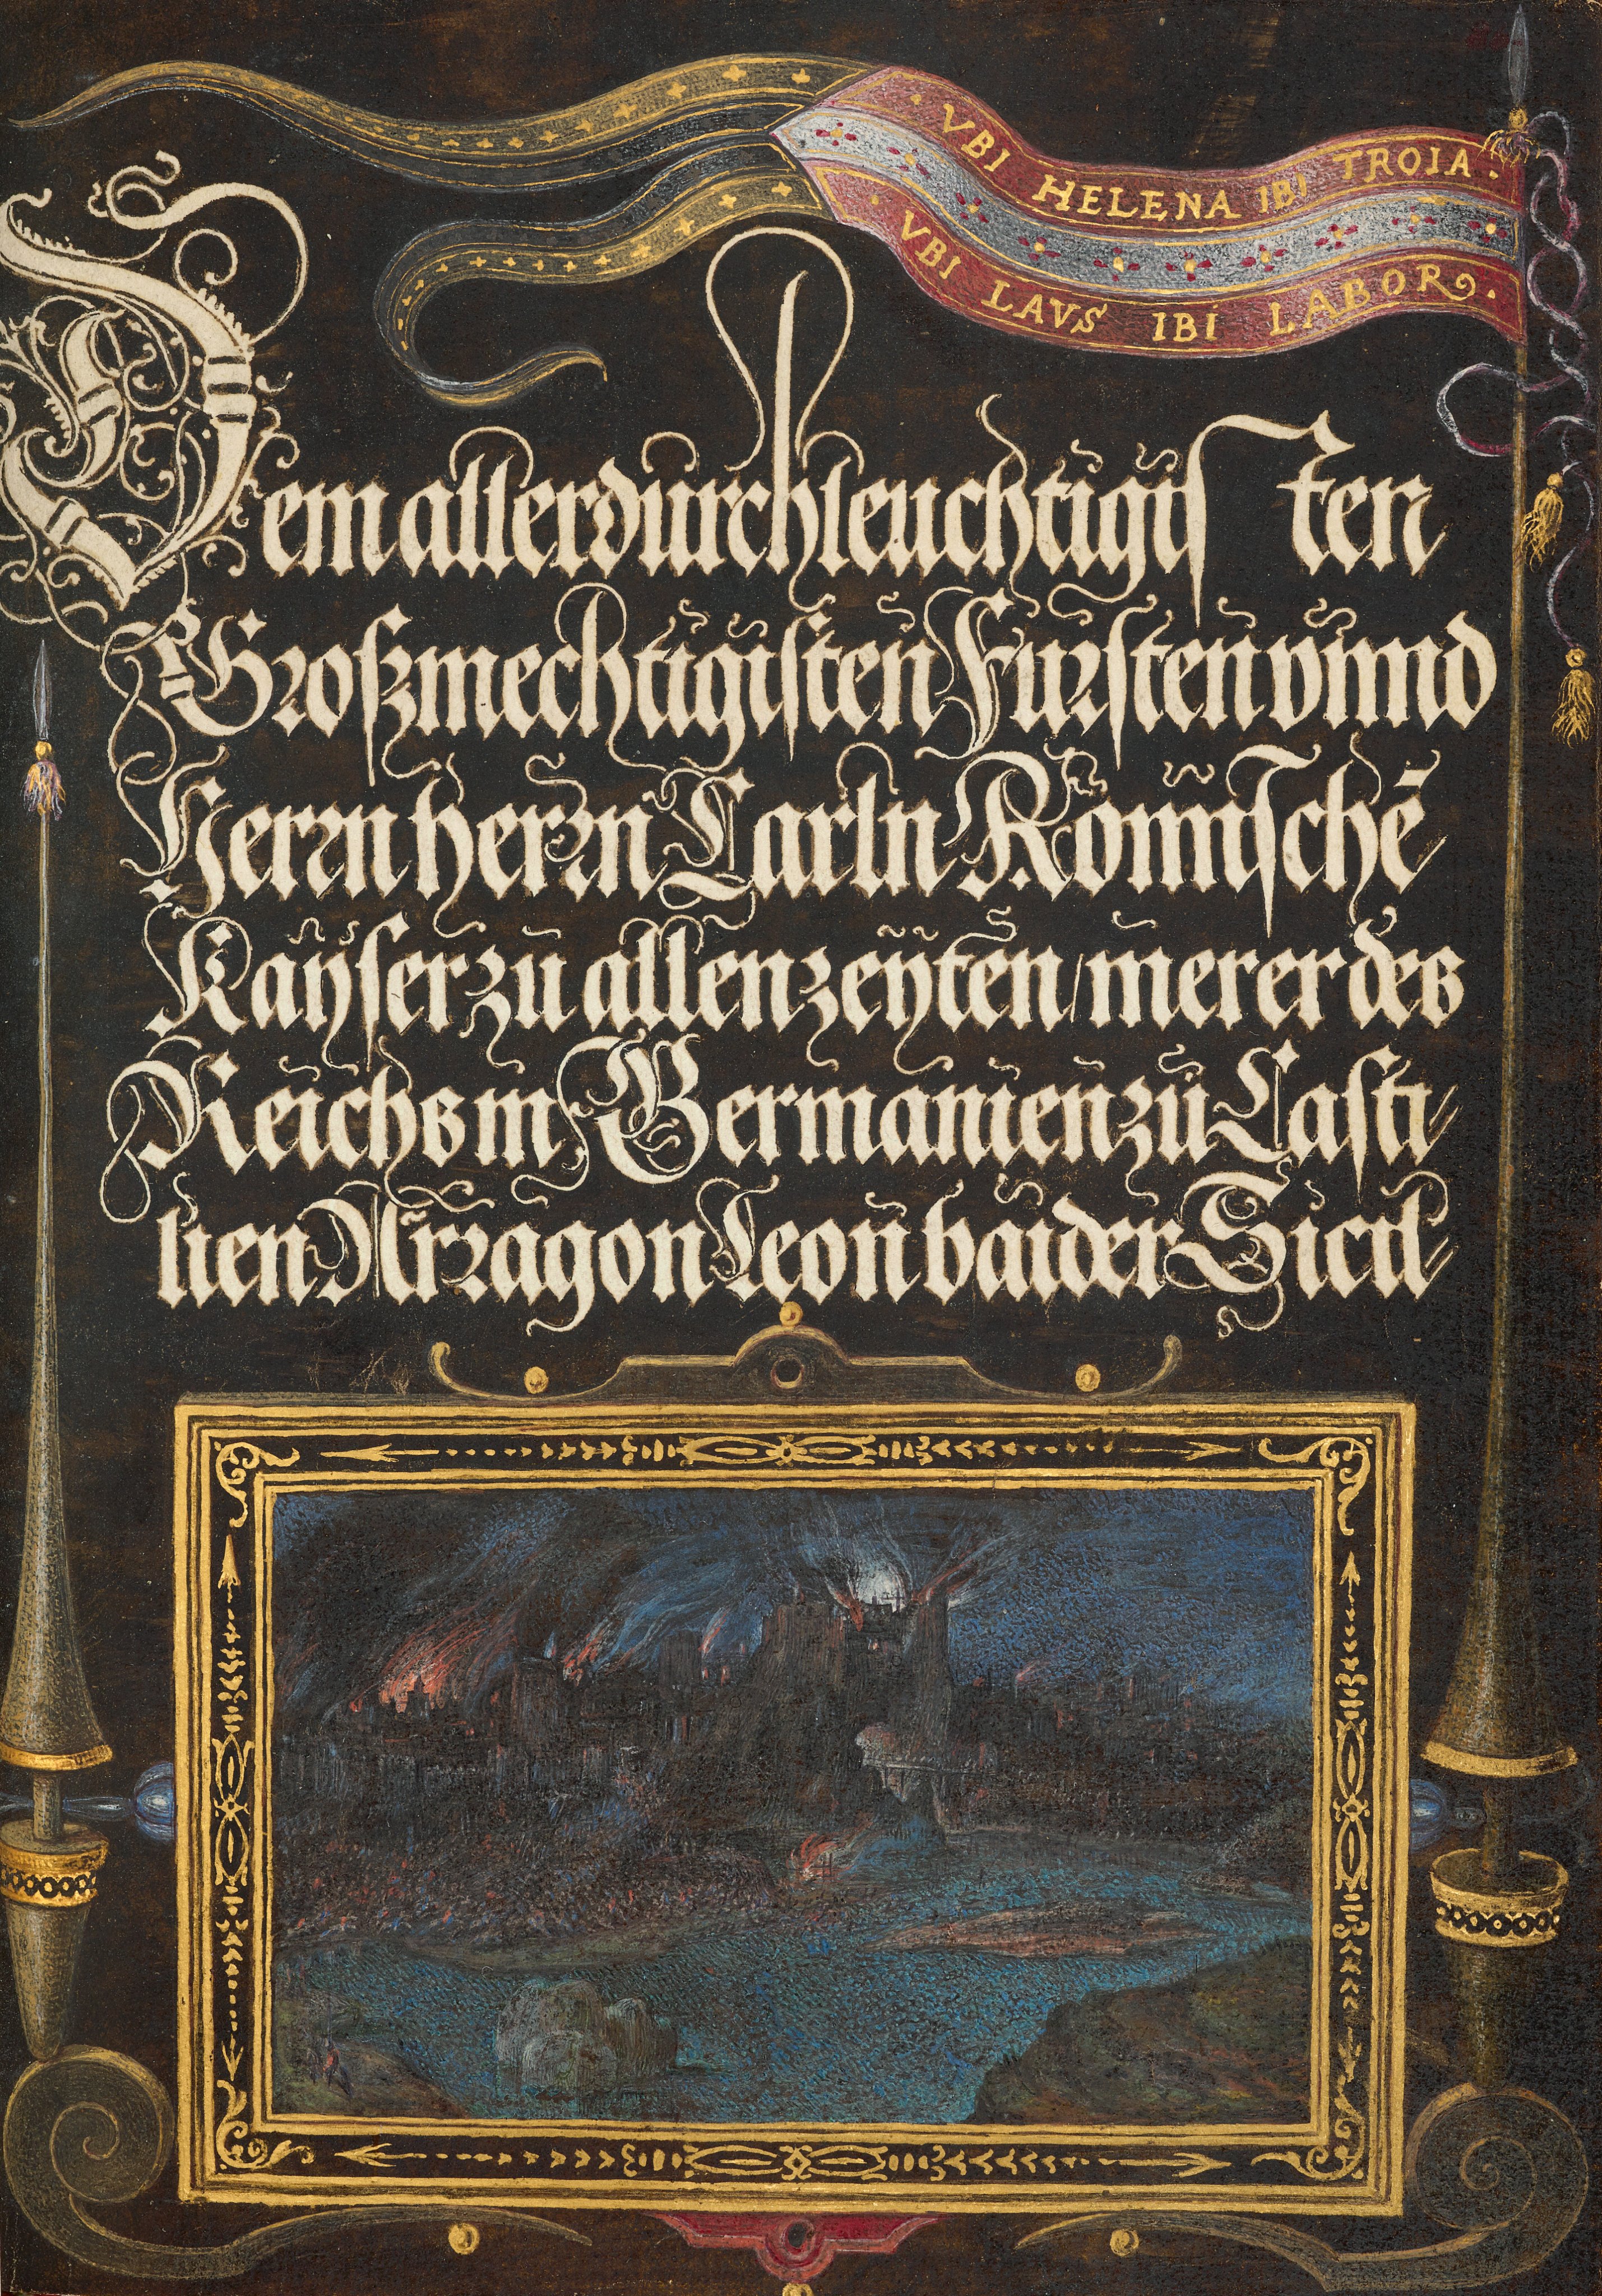 VBI HELENA IBI TROIA.
VBI LAVS IBI LABOR.
Dem allerdurchleuchtigisten
Großmechtigisten Fursten vnnd
Herrn herrn Carln Römischē
Kayser zu allen zeyten / merer des
Reichs in Germanien zu Casti-
lien Arragon Leon baider Sicil-